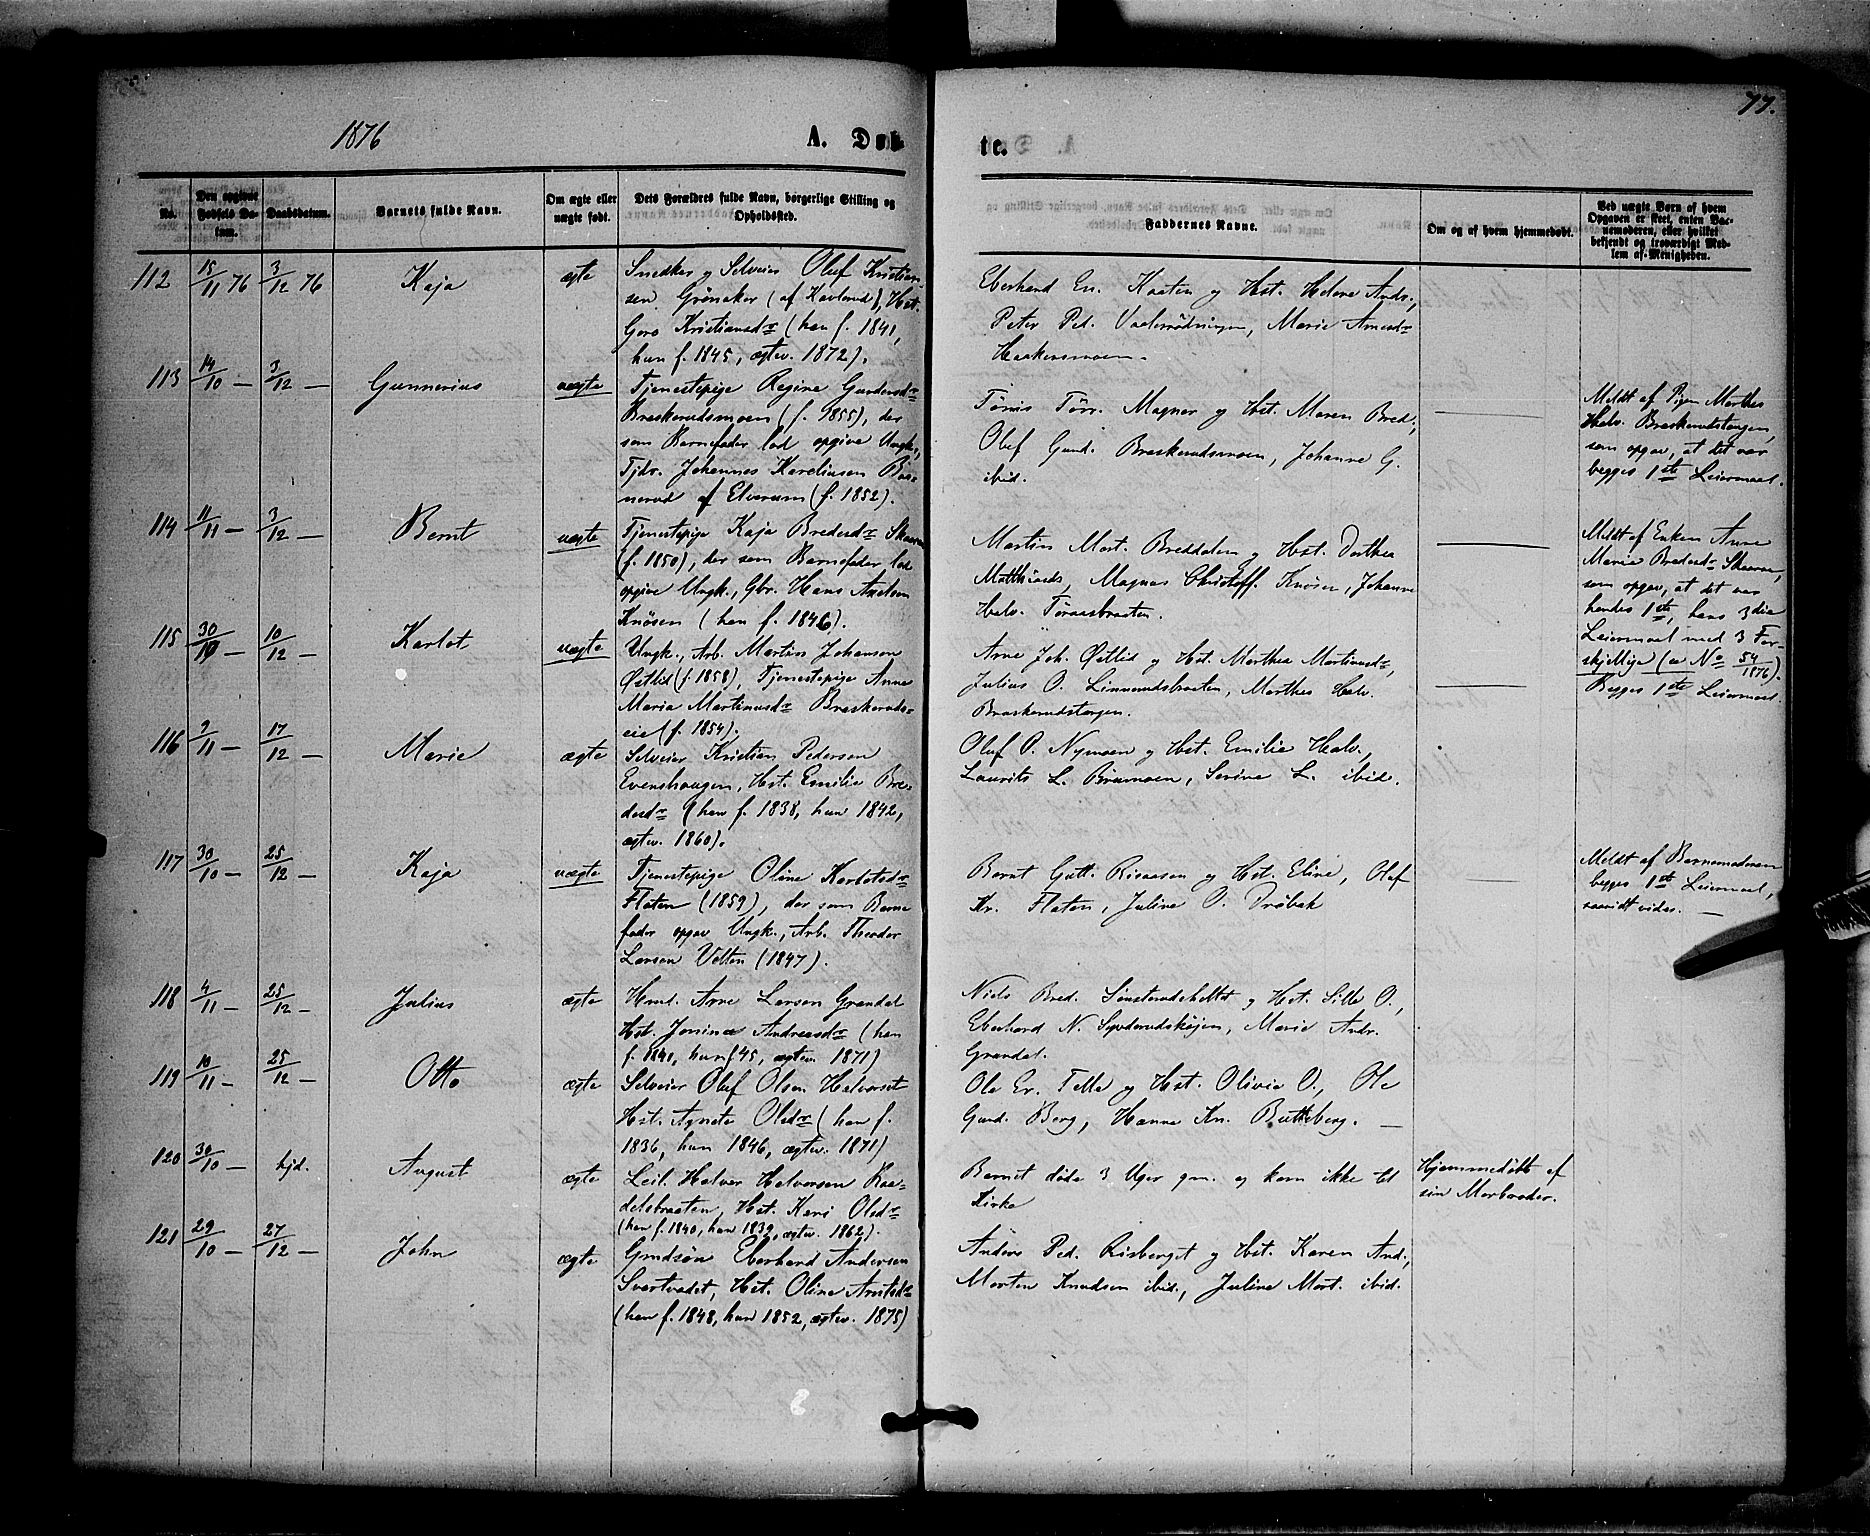 1876
A. Døb-
te.
77.
No.
Den opgivne Fødsels Da-
tum.
Daabsdatum.
Barnets fulde Navn.
Om ægte eller
uægte født.
Dets Forældres fulde Navn, borgerlige Stilling og
Opholdssted.
Faddernes Navne.
Om og af hvem hjemmedøbt.
Ved uægte Børn af hvem
Opgaven er skeet, enten Bar-
nemoderen, eller hvilket
bekjendt og troværdigt Med-
lem af Menigheden.
112 15/11 76 3/12 76 Kaja ægte
Snedker og Selveier Oluf Kristian-
sen Grönaker (af Kavlerud), Hst.
Goro Kristiansdr (han f. 1841,
hun f. 1845, ægtev. 1872).
Eberhard En. Kaaten og Hst. Helene Andr.,
Peter Ped. Vaalerödningen, Marie Arnesdr
Haakensmoen.
113 14/10 — 3/12 — Gunnerius uægte
Tjenestepige Regine Gundersdr
Braskerudsmoen (f. 1855), der
som Barnefader lod opgive Ungk.,
Tjdr. Johannes Kareliusen Baa-
nerud af Elverum (f. 1852).
Tönis Törr. Magnor og Hst. Maren Bred.,
Oluf Gund. Braskerudsmoen, Johanne G.
ibid.
Meldt af Pigen Marthea
Halv. Braskerudstangen,
som opgav, at det var
begges 1ste Leiermaal.
114 11/11 — 3/12 — Bernt uægte
Tjenestepige Kaja Bredesdr Skaaren
(f. 1850), der som Barnefader lod
opgive Ungk., Gbr. Hans Amdsen
Knösen (han f. 1846).
Martin Mart. Breddalen og Hst. Dorthea
Matthiasd., Magnus Christoff. Knösen, Johanne
Halv. Törnesbraaten.
Meldt af Enken Anne
Maria Bredesdr Skaaren,
som opgav, at det var
hendes 1ste, hans 3die
Leiermaal med 3 For-
skjellige (cr No 54/1876).
115 30/10 — 10/12 — Karlot uægte
Ungk., Arb. Martin Johansen
Östlid (f. 1858), Tjenestepige Anne
Maria Martinusdr Braskeruds-
eie (f. 1854).
Arne Joh. Östlid og Hst. Marthea Martinusdr,
Julius O. Linnerudsbraaten, Marthea Halv.
Braskerudstangen.
Begges 1ste Leiermaal.
116 9/11 — 17/12 — Marie ægte
Selveier Kristian Pedersen
Evenshaugen, Hst. Emilie Bre-
desdr (han f. 1838, hun 1842,
ægtev. 1860).
Oluf O. Nymoen og Hst. Emilie Halv.,
Laurits L. Brumoen, Serine L. ibid.
117 30/10 — 25/12 — Kaja uægte
Tjenestepige Oline Karlotsdr
Flaten (1859), der som Barne
fader opgav Ungk., Arb. Theodor
Larsen Velten (1847).
Bernt Gutt. Risaasen og Hst. Eline, Olaf
Kr. Flaten, Juline O. Dröbak
Meldt af Barnemoderen
begges 1ste Leiermaal,
saavidt vides. —
118 4/11 — 25/12 — Julius ægte
Hmd. Arne Larsen Grandal
Hst. Jonina Andreasdr (han
f. 1840, hun f 45, ægtev. 1871)
Niels Bred. Sönsterudeholtet og Hst. Sille O.,
Eberhard N. Syverudskojen, Marie Andr.
Grandal.
119 10/11 — 25/12 — Otto ægte
Selveier Oluf Olsen Halvorset
Hst. Agnete Olsdr (han f.
1836, hun 1846, ægtev. 1871)
Ole Er. Telle og Hst. Olivia O., Ole
Gund. Berg, Hanna Kn. Butteberg. —
120 30/10 — hjd. August ægte
Leil. Halvor Halvorsen Raa-
delsbraaten, Hst. Kari Olsdr
(han f. 1840, hun 1839, ægtev. 1862).
Barnet döde 3 Uger gm. og kom ikke til
Kirke
Hjemmedöbt af
sin Morbroder.
121 29/10 — 27/12 — John ægte
Grudsön Eberhard Andersen
Svartvadet, Hst. Oline Arntsdr
(han f. 1848, hun 1852, ægtev. 1875)
Anders Ped. Risberget og Hst. Karen And.,
Morten Knudsen ibid., Juline Mort. ibid.